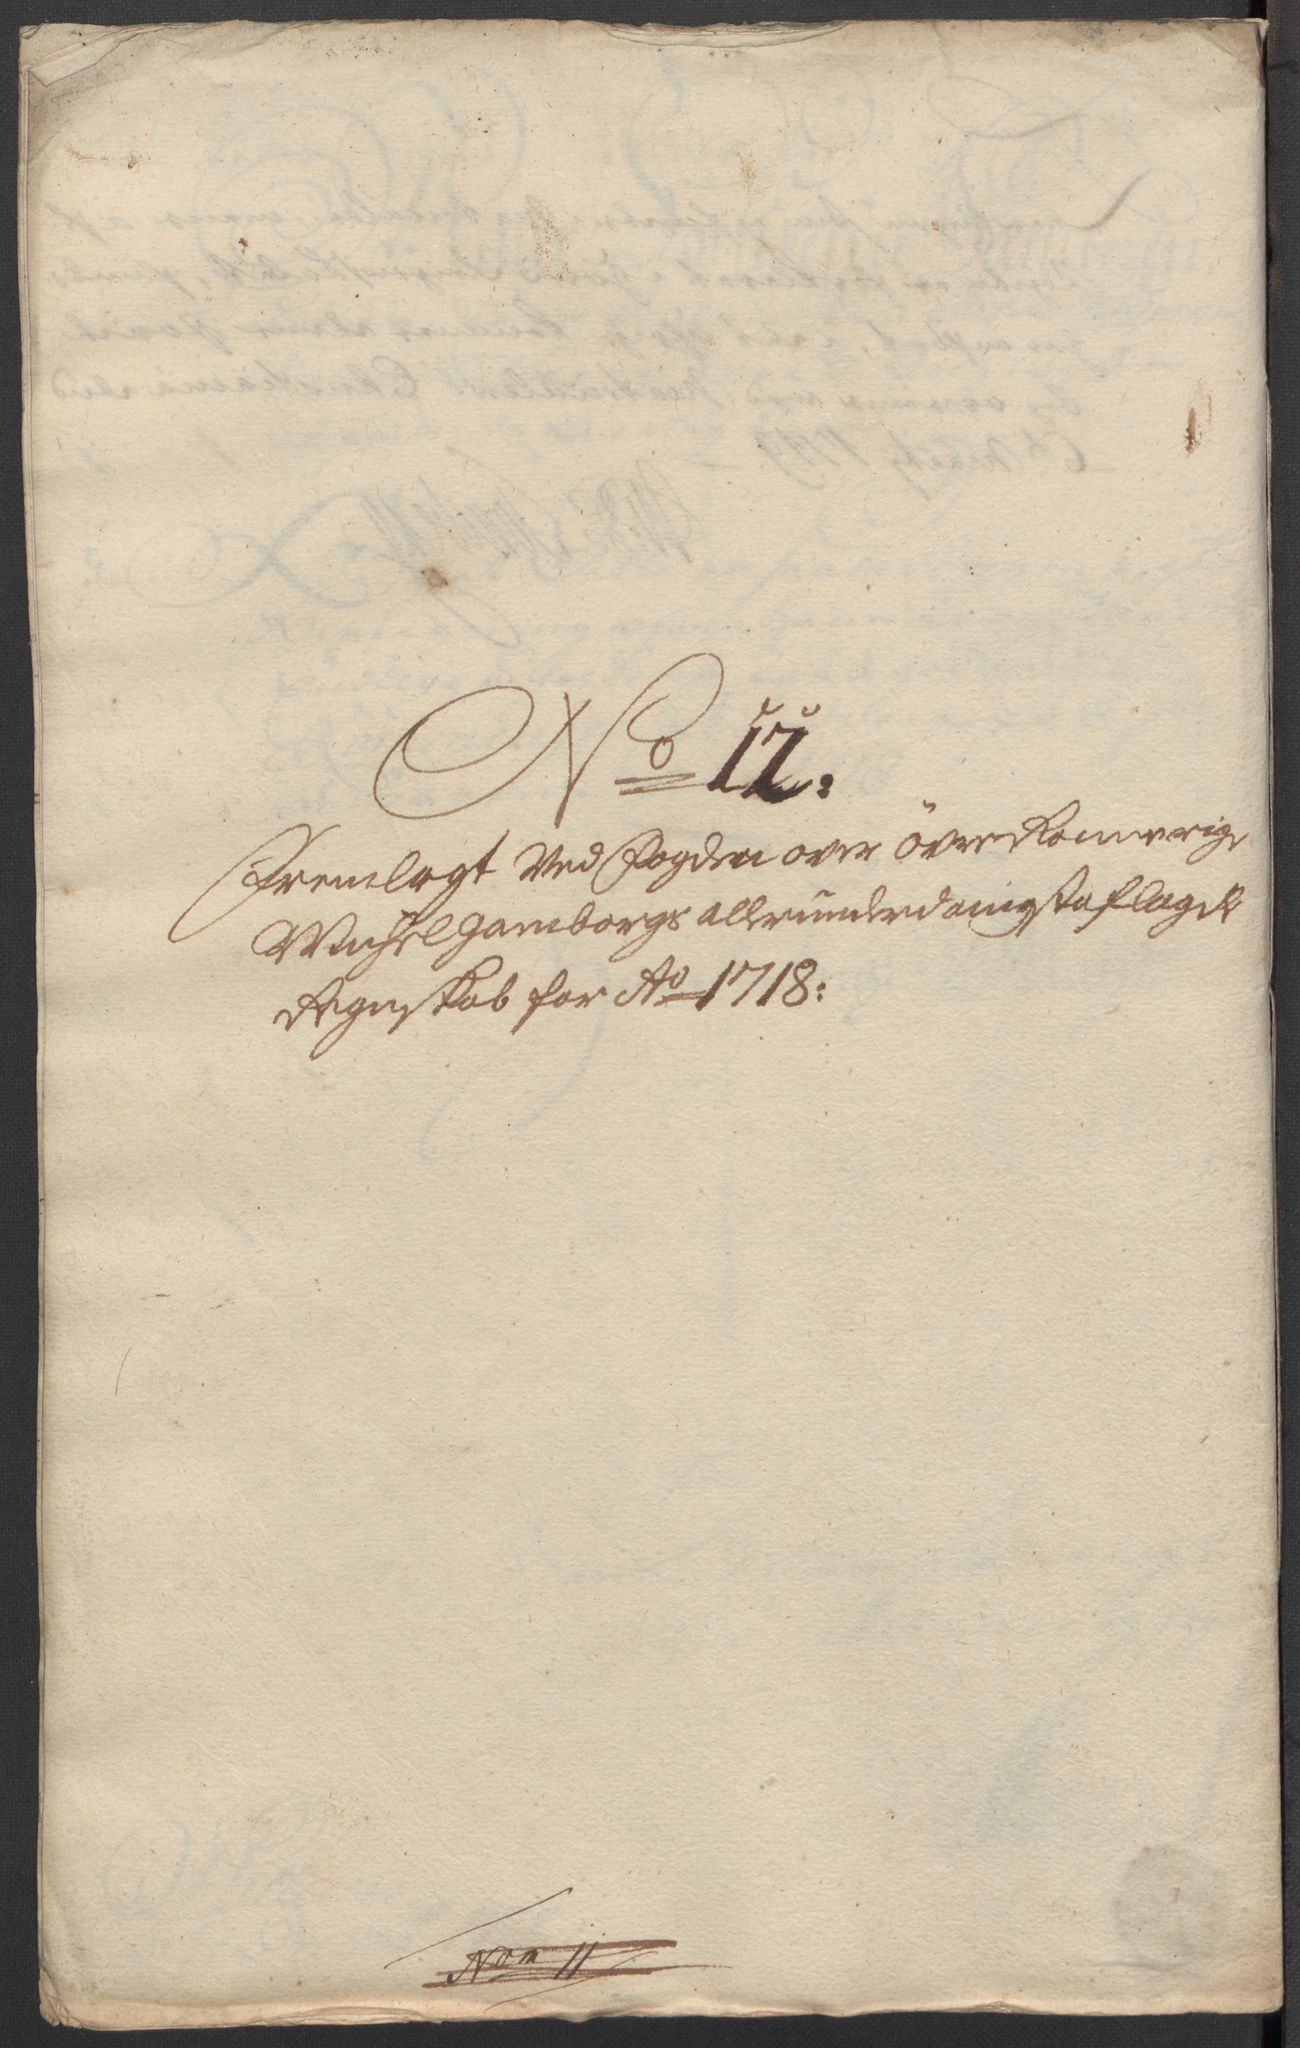 No 17:
Fremlagt Ved Fogden over Övre Romerrige
Michel Gamborgs allerunderdanigst aflagde
Regnskab for Ao 1718:
Nom 11